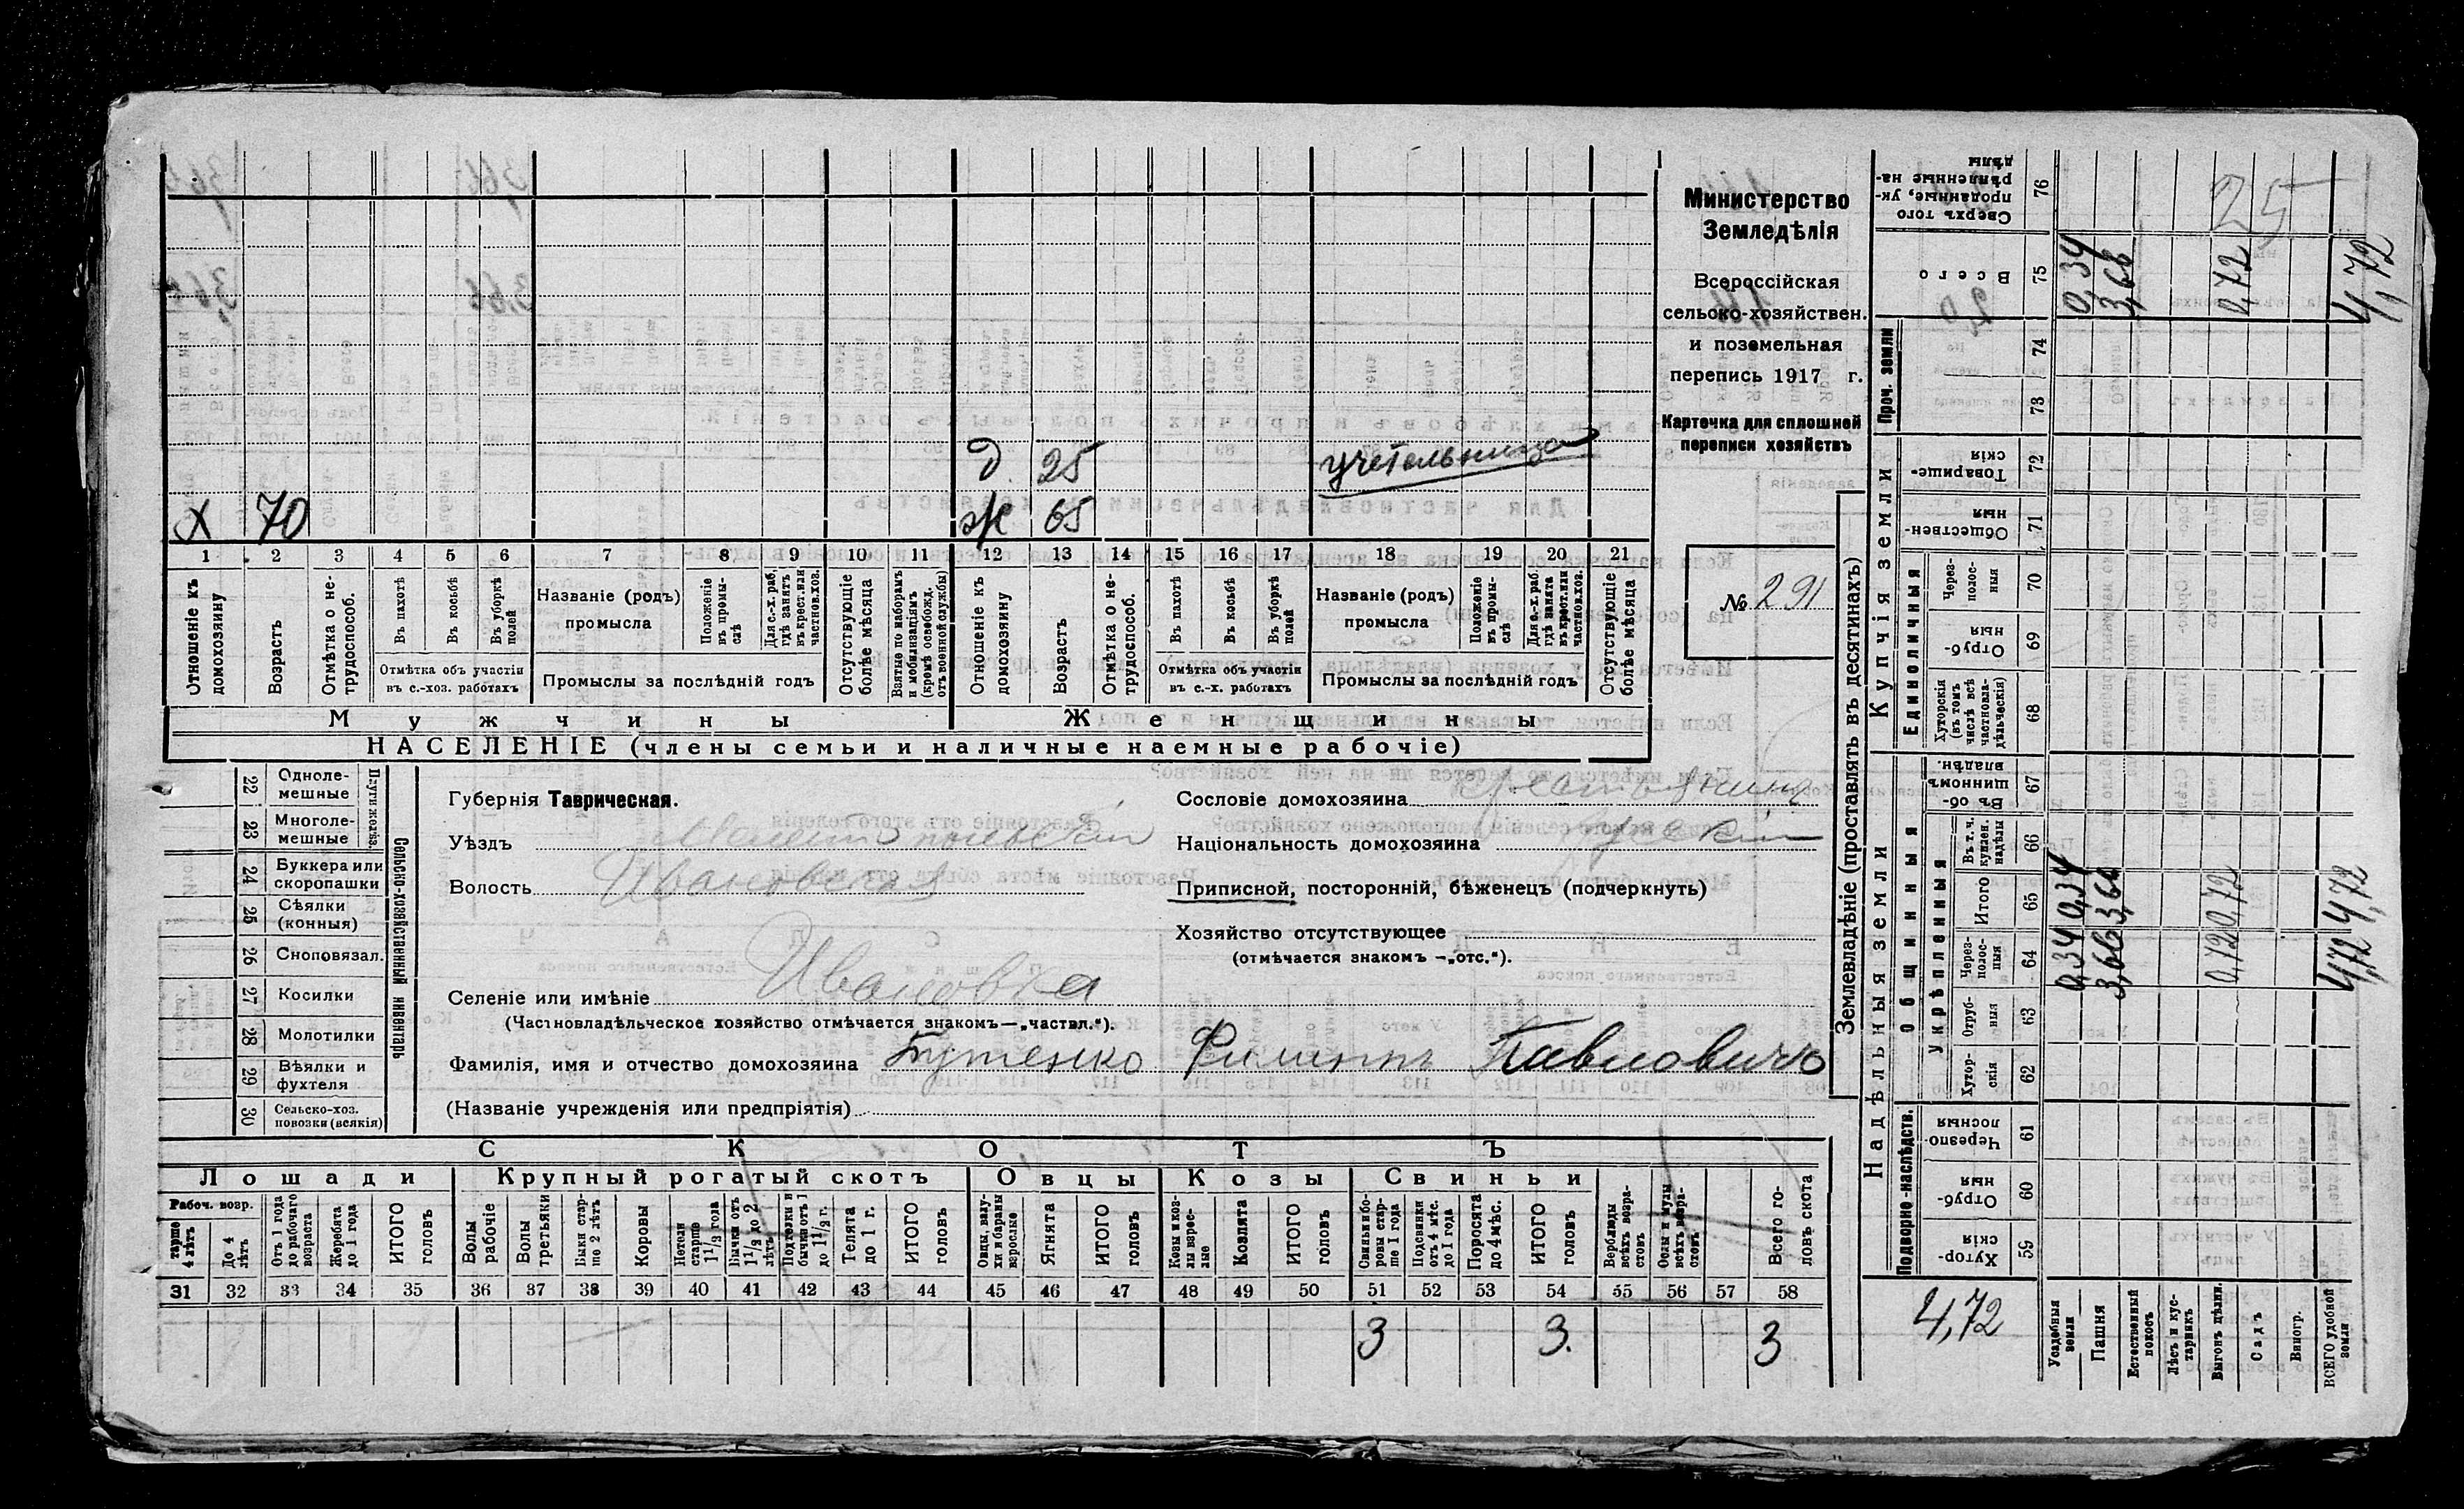 Министерство
Земледѣлія
Всероссійская
сельско-хозяйствен.
и поземельная
перепись 1917 г.
Карточка для сплошней
переписи хозяйствъ
№ 291
д. 25 учительница
Х 70 ж 65
1 2 3 4 5 6 7 8 9 10 11 12 13 14 15 16 17 18 19 20 21
Отношеніе къ домохозяину
Возрастъ
Отмѣтка о не-трудоспособ.
Въ пахотѣ
Въ косьбѣ
Въ уборкѣ полей
Отмѣтка объ участіи
въ с.-хоз. работахъ
Названіе (родъ)
промысла
Положеніе въ промы-слѣ
Для с.-х. раб. гдѣ занятъ въ крест. или частнов. хоз.
Промыслы за послѣдній годъ
Отсутствующіе болѣе мѣсяца
Взятые по наборамъ и мобилизаціямъ (кромѣ освобожд. отъ военной службы)
Отношеніе къ домохозяину
Возрастъ
Отмѣтка о не-трудоспособ.
Въ пахотѣ
Въ косьбѣ
Въ уборкѣ полей
Отмѣтка объ участіи
въ с.-х. работахъ
Названіе (родъ)
промысла
Положеніе въ промы-слѣ
Для с.-х. раб. гдѣ занята въ крест. или частнов. хоз.
Промыслы за послѣдній годъ
Отсутствующіе болѣе мѣсяца
Мужчины Женщины
НАСЕЛЕНІЕ (члены семьи и наличные наемные рабочіе)
Сельско-хозяйственный инвентарь
Плуги желѣз.
22 Однолемешные
23 Многолемешные
24 Буккера или скоропашки
25 Сѣялки (конныя)
26 Сноповязал.
27 Косилки
28 Молотилки
29 Вѣялки и фухтеля
30 Сельско-хоз. повозки (всякія)
Губернія Таврическая.
Уѣздъ Мелитопольскій
Волость Ивановская
Селеніе или имѣніе Ивановка
(Частновладѣльческое хозяйство отмѣчается знакомъ—„частвл.“).
Сословіе домохозяина крестьянинъ
Національность домохозяина русскій
Приписной, посторонній, бѣженецъ (подчеркнуть)
Хозяйство отсутствующее
(отмѣчается знакомъ —„отс.“).
Фамилія, имя и отчество домохозяина Бутенко Филиппъ Павловичъ
(Названіе учрежденія или предпріятія)
СКОТЪ
Лошади Крупный рогатый скотъ Овцы Козы Свиньи
Рабоч. возр.
тарше 4 лѣтъ
До 4 лѣтъ
Отъ 1 года до рабочаго возраста
Жеребята до 1 года
ИТОГО головъ
Волы рабочіе
Волы третьяки
Быки стар-ше 2 лѣтъ
Коровы
Нетели старше 1 1/2 года
Бычки отъ 1 1/2 до 2 лѣтъ
Подтелки и бычки отъ 1 до 1 1/2 г.
Телята до 1 г.
ИТОГО головъ
Овцы, валу-хи и бараны взрослые
Ягнята
ИТОГО головъ
Козы и коз-лы взрос-лые
Козлята
ИТОГО головъ
Свиньи и бо-ровы стар-ше 1 года
Подсвинки отъ 4 мѣс. до 1 года
Поросята до 4 мѣс.
ИТОГО головъ
Верблюды всѣхъ возра-стовъ
Ослы и мулы всѣхъ возра-стовъ
Всего го-ловъ скота
31 32 33 34 35 36 37 38 39 40 41 42 43 44 45 46 47 48 49 50 51 52 53 54 55 56 57 58
3 3. 3
Землевладѣніе (проставлять въ десятинахъ)
Купчія земли
Надѣльныя земли
Сверхъ того проданные, ук-рѣпленные на-дѣлы 76
Всего 75 0,34 3,66 0,72 4,72
25
Проч. земли 74 73
Товарище-скія 72
Обществен-ныя 71
Единоличныя
Через-полос-ныя 70
Отруб-ныя 69
Хуторскія (въ томъ числѣ всѣ частновла-дѣльческія) 68
Общинныя
Въ об-щинномъ владѣн. 67
Укрѣпленныя
Въ т. ч. куплен. надѣлы 66
Итого 65 0,34 3,66 0,72 4,72
Через-полос-ныя 64 0,34 3,66 0,72 4,72
Отруб-ныя 63
Хутор-скія 62
Подворно-наслѣдств.
Черезпо-лосныя 61
Отруб-ныя 60
Хутор-скія 59
4,72
Усадебная земля
Пашня
Естественный покосъ
Лѣсъ и кус-тарникъ
Выгонъ цѣлин.
Садъ
Виногр.
ВСЕГО удобной земли